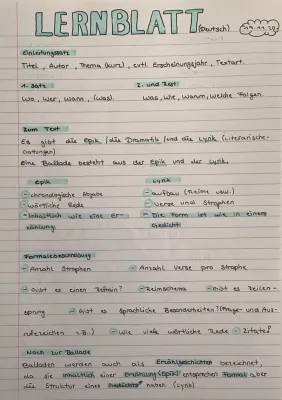 LERNBLATT (Deutsch) 19.11.20
Einleitungssatz
Titel, Autor, Thema (kurz), evtl. Erscheinungsjahr, Textart.
1. Satz 2. und Rest
Wo, Wer, Wann, (Was). Was, Wie, Warum, Welche Folgen.
Zum Text
Es gibt die Epik / die Dramatik / und die Lyrik (Literarische-
Gattungen)
Eine Ballade besteht aus der Epik und der Lyrik.
Epik Lyrik
- chronologische Abgabe - Aufbau (Reime usw.)
- wörtliche Rede - Verse und Strophen
- Inhaltlich wie eine Er- - Die Form ist wie in einem
zählung. Gedicht.
Formalebeschreibung
- Anzahl Strophen - Anzahl Verse pro Strophe
- Gibt es einen Refrain? - Reimschema - Gibt es Zeilen-
sprung - Gibt es sprachliche Besonderheiten? (Frage- und Aus-
rufezeichen z.B.) - Wie viele wörtliche Rede - Zitate?
Nach zur Ballade
Balladen werden auch als Erzählgedichte bezeichnet,
da sie inhaltlich einer Erzählung (Epik) entsprechen Formal aber
die Struktur eines Gedichts haben (Lyrik)